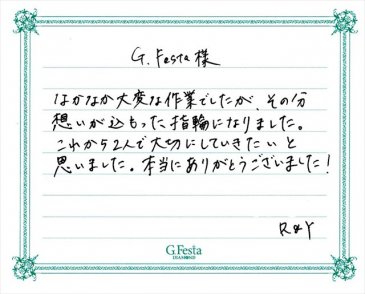 G. Festa 様
なかなか大変な作業でしたが、その分
想いが込もった指輪になりました。
これから2人で大切にしていきたいと
思いました。本当にありがとうございました!
R&Y
G.Festa
DIAMOND